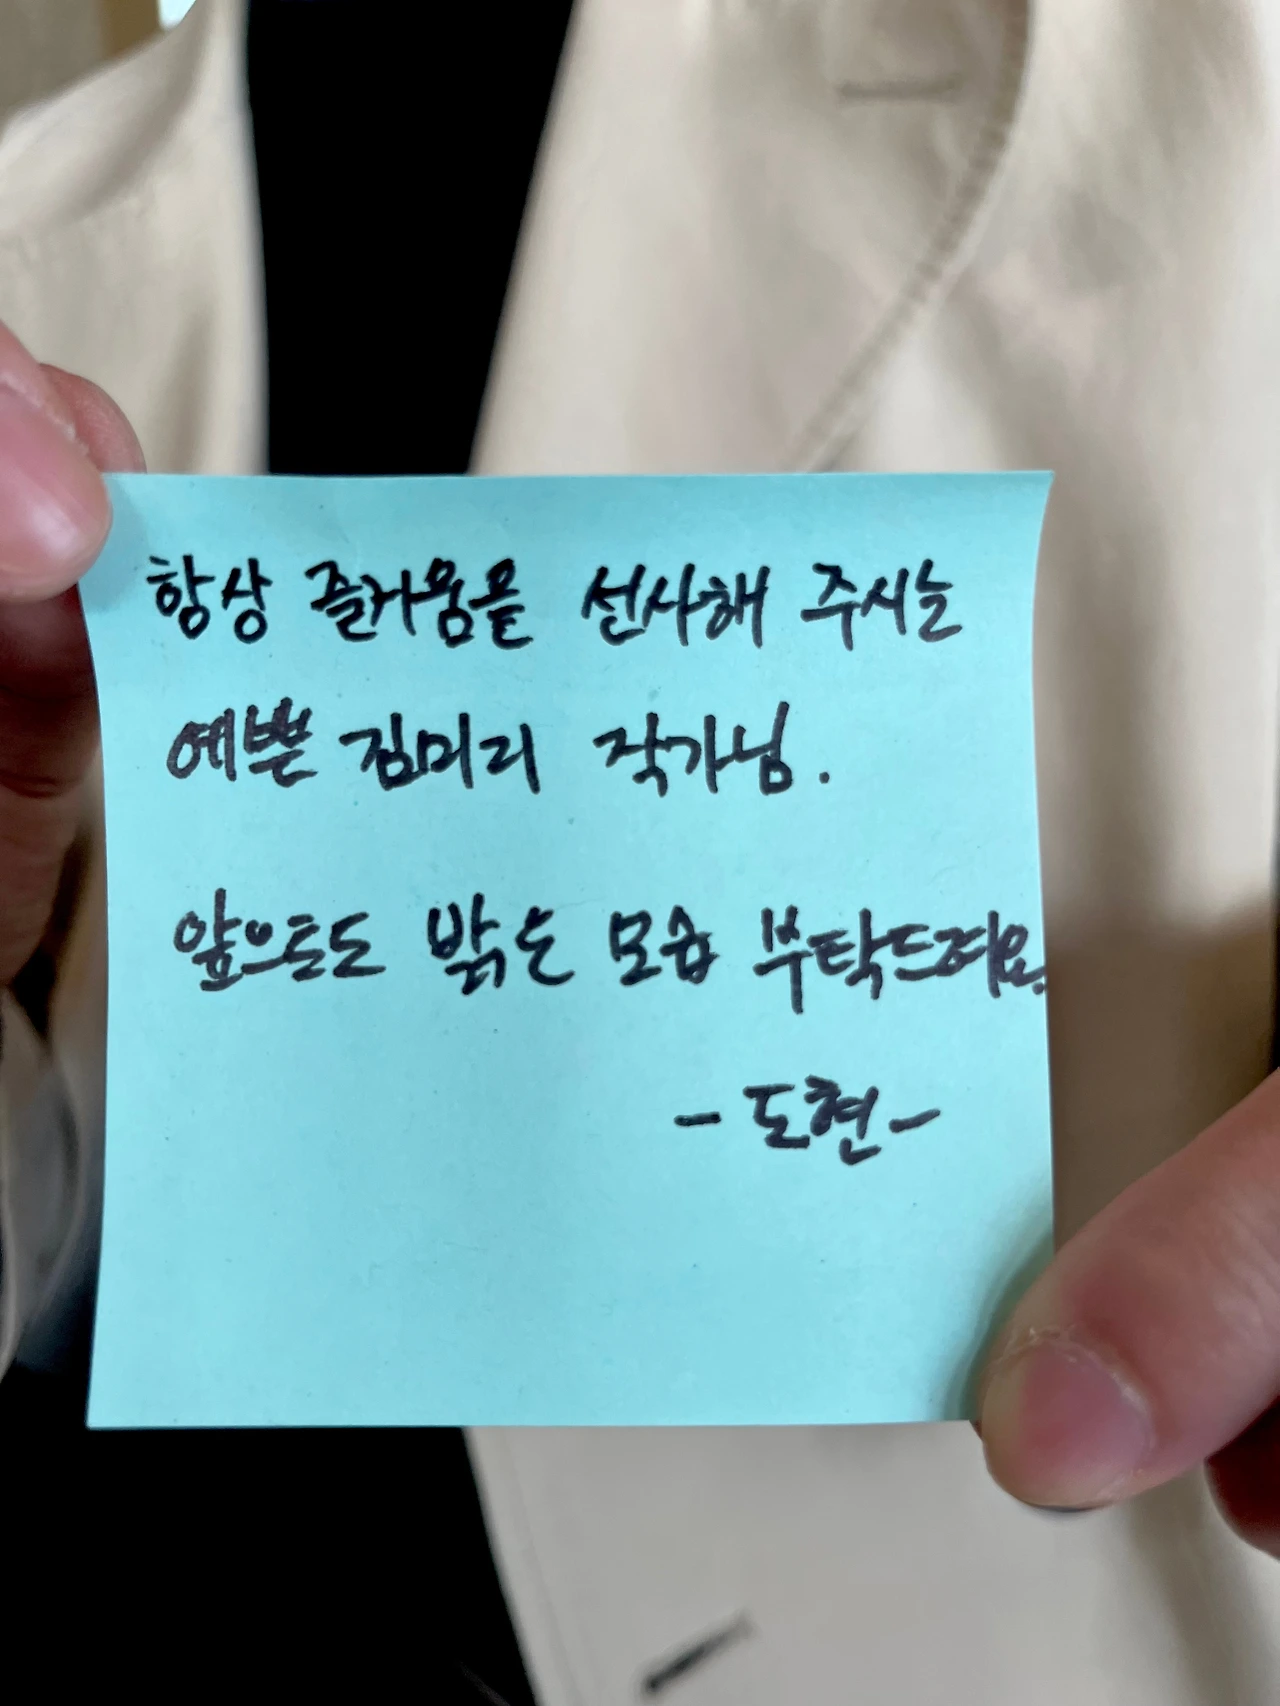 항상 즐거움을 선사해 주시는
예쁜 김미리 작가님.
앞으로도 밝은 모습 부탁드려요.
- 도현 -